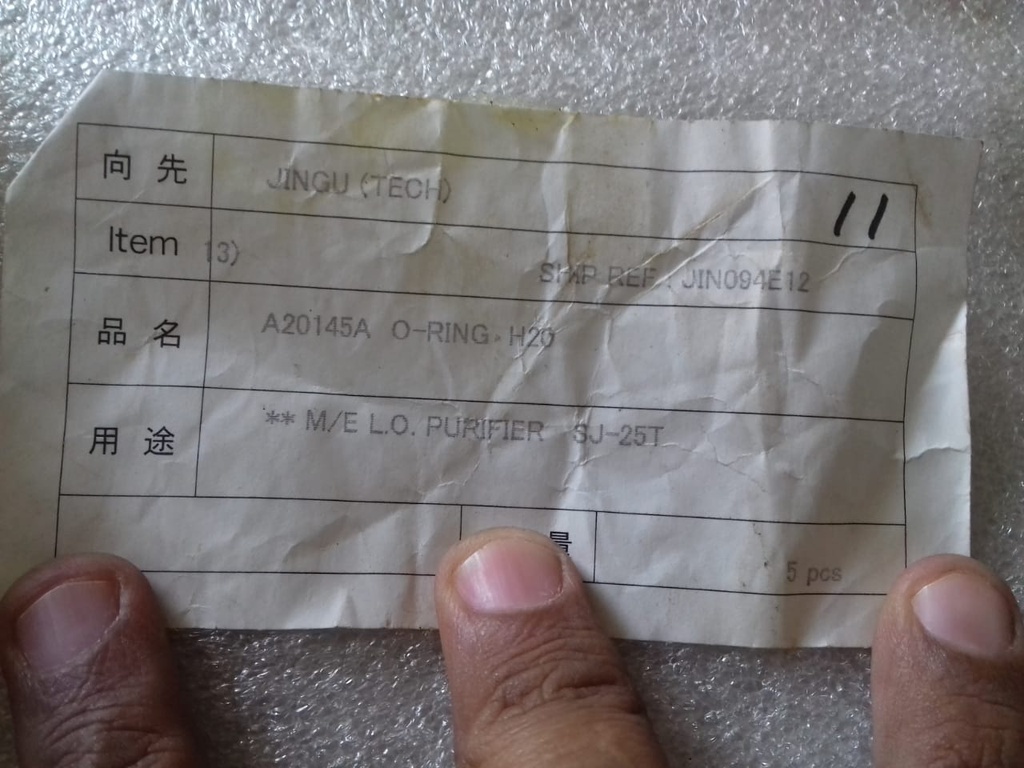 向先 JINGU (TECH) 11
Item 13) SHIP REF : JIN094E12
品名 A20145A O-RING H20
用途 ** M/E L.O. PURIFIER SJ-25T
量 5 pcs